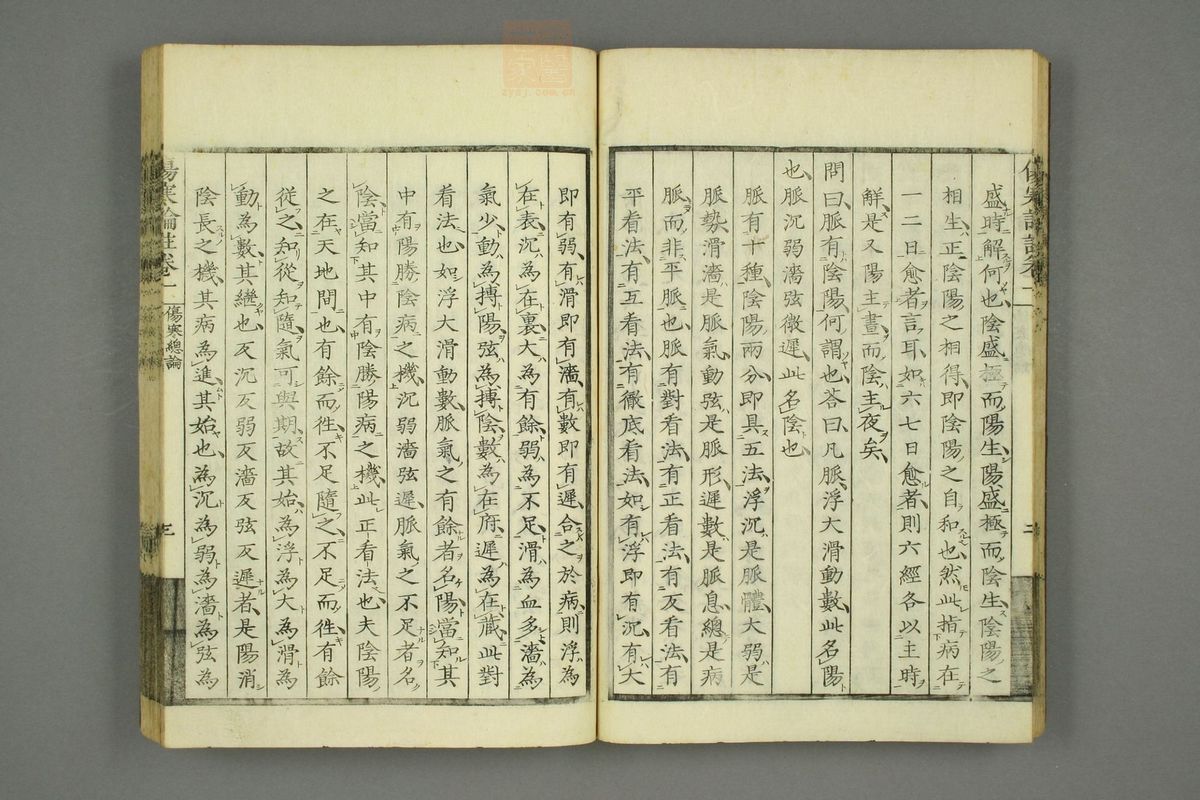 盛時解何也陰盛極而陽生陽盛極而陰生陰陽之
相生正陰陽之相得即陰陽之自和也然此指病在
一二日愈者言耳如六七日愈者則六經各以主時
解是又陽主晝而陰主夜矣
問曰脈有陰陽何謂也荅曰凡脈浮大滑動數此名陽
也脈沉弱濇弦微遲此名陰也
脈有十種陰陽兩分即具五法浮沉是脈體大弱是
脈勢滑濇是脈氣動弦是脈形遲數是脈息總是病
脈而非平脈也脈有對看法有正看法有反看法有
平看法有互看法有徹底看法如有浮即有沉有大
即有弱有滑即有濇有數即有遲合之於病則浮為
在表沉為在裏大為有餘弱為不足滑為血多濇為
氣少動為搏陽弦為搏陰數為在府遲為在藏此對
看法也如浮大滑動數脈氣之有餘者名陽當知其
中有陽勝陰病之機沉弱濇弦遲脈氣之不足者名
陰當知其中有陰勝陽病之機此正看法也夫陰陽
之在天地間也有餘而徃不足隨之不足而徃有餘
從之知從知隨氣可與期故其始為浮為大為滑為
動為數其變也反沉反弱反濇反弦反遲者是陽消
陰長之機其病為進其始也為沉為弱為濇為弦為
傷寒論註卷二
傷寒總論
三
二
zysj.com.cn